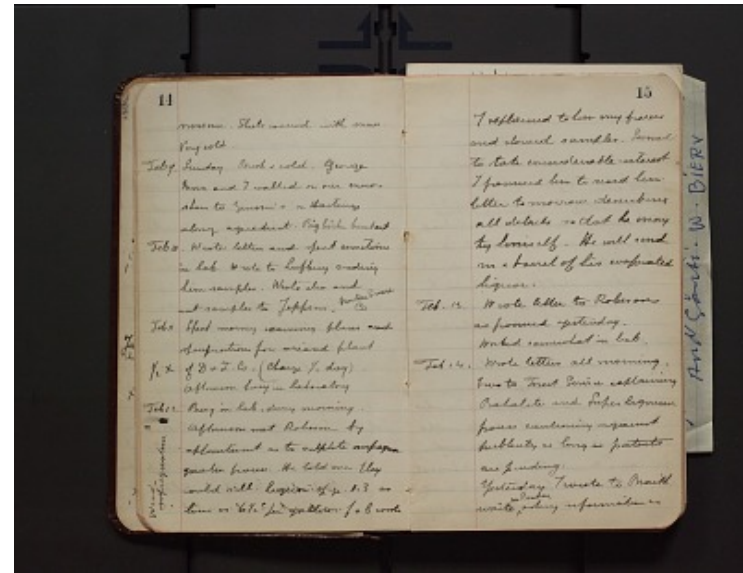 14
snow. Shots covered with snow
Very cold
Feb 9. Sunday. Cold. George
and I walked on our snow
shoes to in Hastings
along aqueduct.
Feb 10. Wrote letters and spent sometime
in lab. Wrote to sending
him samples. Wrote also and
sent samples to
Feb 11 Spent morning examining plans and
specifications for plant
1/2 X of D + F. Co. (Charge 1/2 day)
Afternoon busy in laboratory
Feb 12 Busy in lab. during morning.
Afternoon met Robeson by
appointment as to sulphite
process. He told me they
could sell of 1.3 as
low as gallon f.o.b. works
Wood
15
I explained to him my process
and showed samples. Seemed
to take considerable interest
I promised him to send him
letter to morrow describing
all details so that he may
try himself. He will send
me a barrel of his evaporated
liquor.
Feb. 13. Wrote letter to Robeson
as promised yesterday.
Worked somewhat in lab.
Feb. 14. Wrote letters all morning.
Two to Forest Service explaining
Bakelite and
process cautioning against
publicity as long as patents
are pending.
Yesterday I wrote to
asking information
W. BIERY